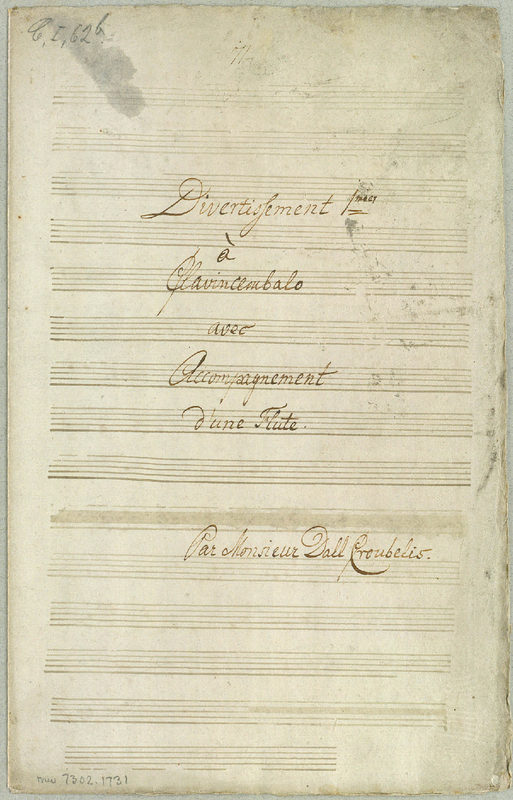 C, I, 62b.
Divertissement 1mier
à
Clavincembalo
avec
Accompagnement
d'une Flute.
Par Monsieur Dall Croubelis.
mu 7302.1731